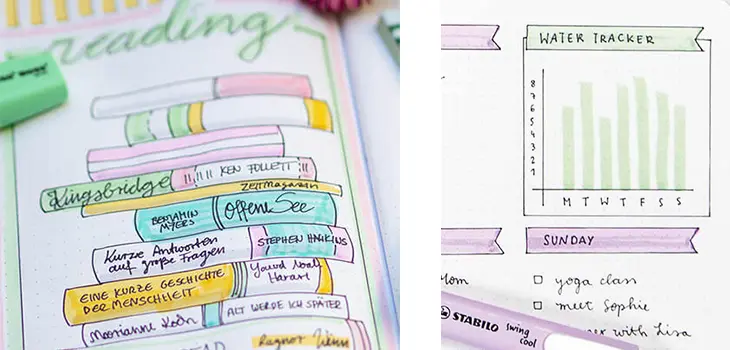 reading
KEN FOLLETT
Kingsbridge
ZEITMAGAZIN
BENJAMIN
MYERS
offene See
Kurze Antworten
auf große Fragen
STEPHEN HAWKINS
EINE KURZE GESCHICHTE
DER MENSCHHEIT
Harari
Marianne Koch
ALT WERDE ICH SPÄTER
Ragnar
WATER TRACKER
8
7
6
5
4
3
2
1
M T W T F S S
SUNDAY
yoga class
meet Sophie
with Lisa
STABILO swing
cool